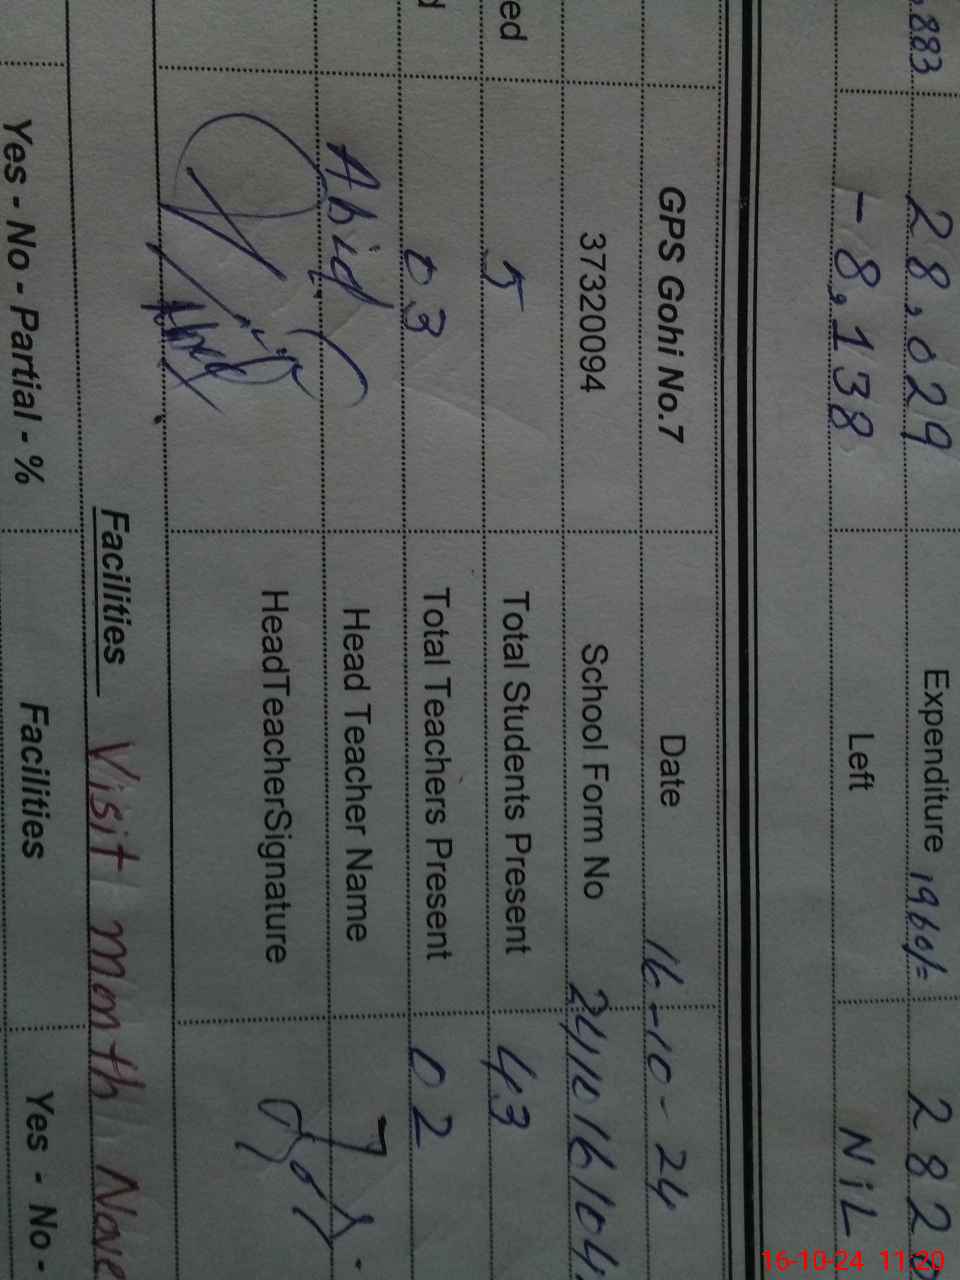 ,883 28,029 Expenditure 1960/= 282
-8,138 Left NiL
GPS Gohi No.7 Date 16-10-24
37320094 School Form No 241016104
ed 5 Total Students Present 43
d 03 Total Teachers Present 02
Abid Head Teacher Name
HeadTeacherSignature
Facilities Visit month Nove
Yes - No - Partial - % Facilities Yes - No -
16-10-24 11:20